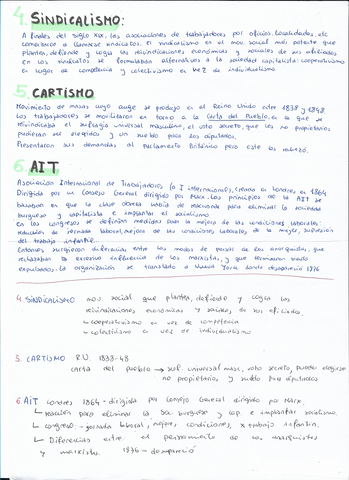 4. Sindicalismo:
A finales del siglo XIX, las asociaciones de trabajadores por oficios, localidades, etc
comenzaron a llamarse sindicatos. El sindicalismo es el mov. social más potente que
plantea, defiende y logra las reivindicaciones económicas y sociales de sus afiliados.
En los sindicatos se formulaban alternativas a la sociedad capitalista: cooperativismo
en lugar de competencia y colectivismo en vez de individualismo.
5. CARTISMO
Movimiento de masas cuyo auge se produjo en el Reino Unido entre 1838 y 1848
Los trabajadores se movilizaron en torno a la Carta del Pueblo, en la que se
reivindicaba el sufragio universal masculino, el voto secreto, que los no propietarios
pudieran ser elegidos y un sueldo para los diputados.
Presentaron sus demandas al parlamento Británico pero este las rechazó.
6. AIT
Asociación Internacional de Trabajadores (o I internacional), creada en Londres en 1864
Dirigida por un Consejo General dirigido por Marx. Los principios de la AIT se
basaban en que la clase obrera había de reaccionar para eliminar la sociedad
burguesa y capitalista e implantar el socialismo
En los congresos se definían medidas para la mejora de las condiciones laborales:
reducción de jornada laboral, mejora de las condiciones laborales de la mujer, supresión
del trabajo infantil...
Entonces, surgieron diferencias entre los modos de pensar de los anarquistas, que
rechazaban la excesiva influencia de los marxistas, y que terminaron siendo
expulsados. La organización se trasladó a Nueva York donde desapareció 1876
4. SINDICALISMO mov. social que plantea, defiende y logra las
reivindicaciones económicas y sociales de sus afiliados.
cooperativismo en vez de competencia
colectivismo en vez de individualismo
5. CARTISMO R.U. 1838-48
carta del pueblo → suf. universal masc, voto secreto, pueda elegirse
no propietario, y sueldo para diputados
6. AIT Londres 1864 - dirigida por Consejo General dirigido por Marx.
reacción para eliminar la soc. burguesa y cap. e implantar socialismo.
congreso - jornada laboral, mejores condiciones, x trabajo infantil.
Diferencias entre el pensamiento de los anarquistas
y marxistas. 1876 - desapareció